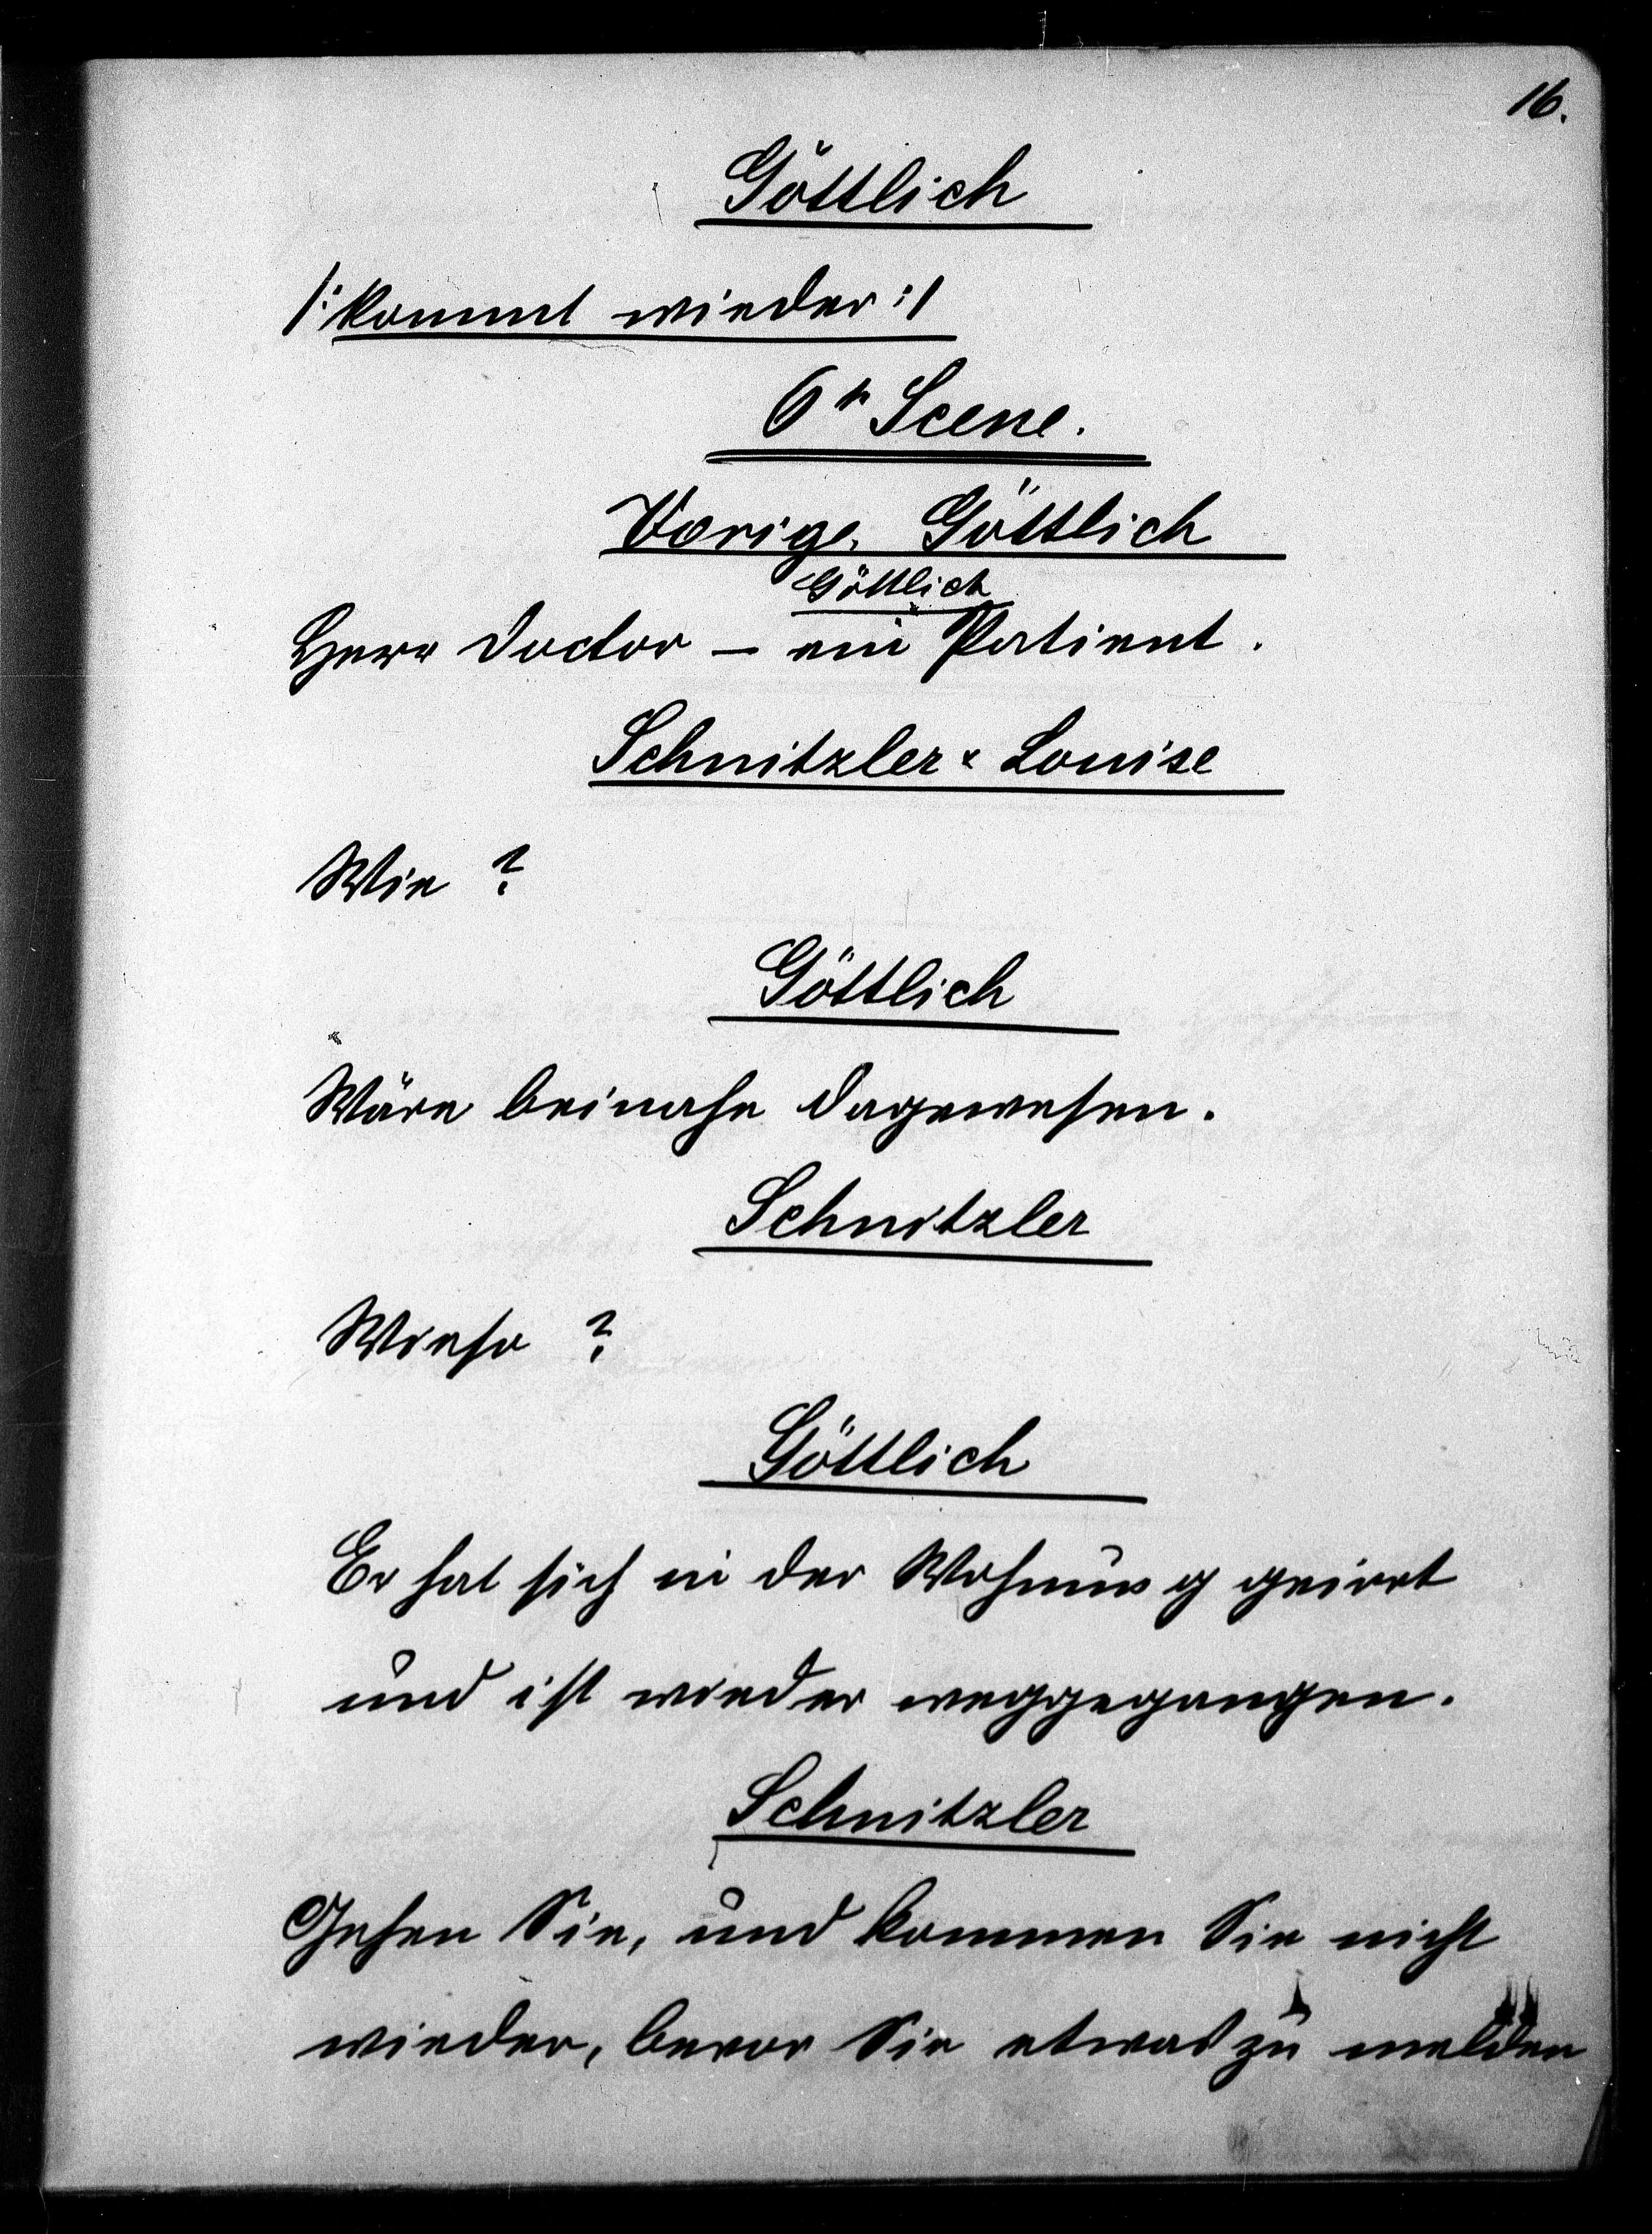 16.
Göttlich
/: kommt wieder :/
6te Scene.
Vorige, Göttlich
Göttlich
Herr Doctor – ein Patient.
Schnitzler & Louise
Wie ?
Göttlich
Wäre beinahe dagewesen.
Schnitzler
Wieso ?
Göttlich
Er hat sich in der Wohnung geirrt
und ist wieder weggegangen.
Schnitzler
Gehen Sie, und kommen Sie nicht
wieder, bevor Sie etwas zu melden